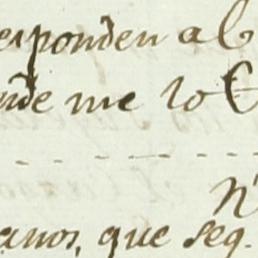 esponden a l
nde me lo
N
anos, que seg.